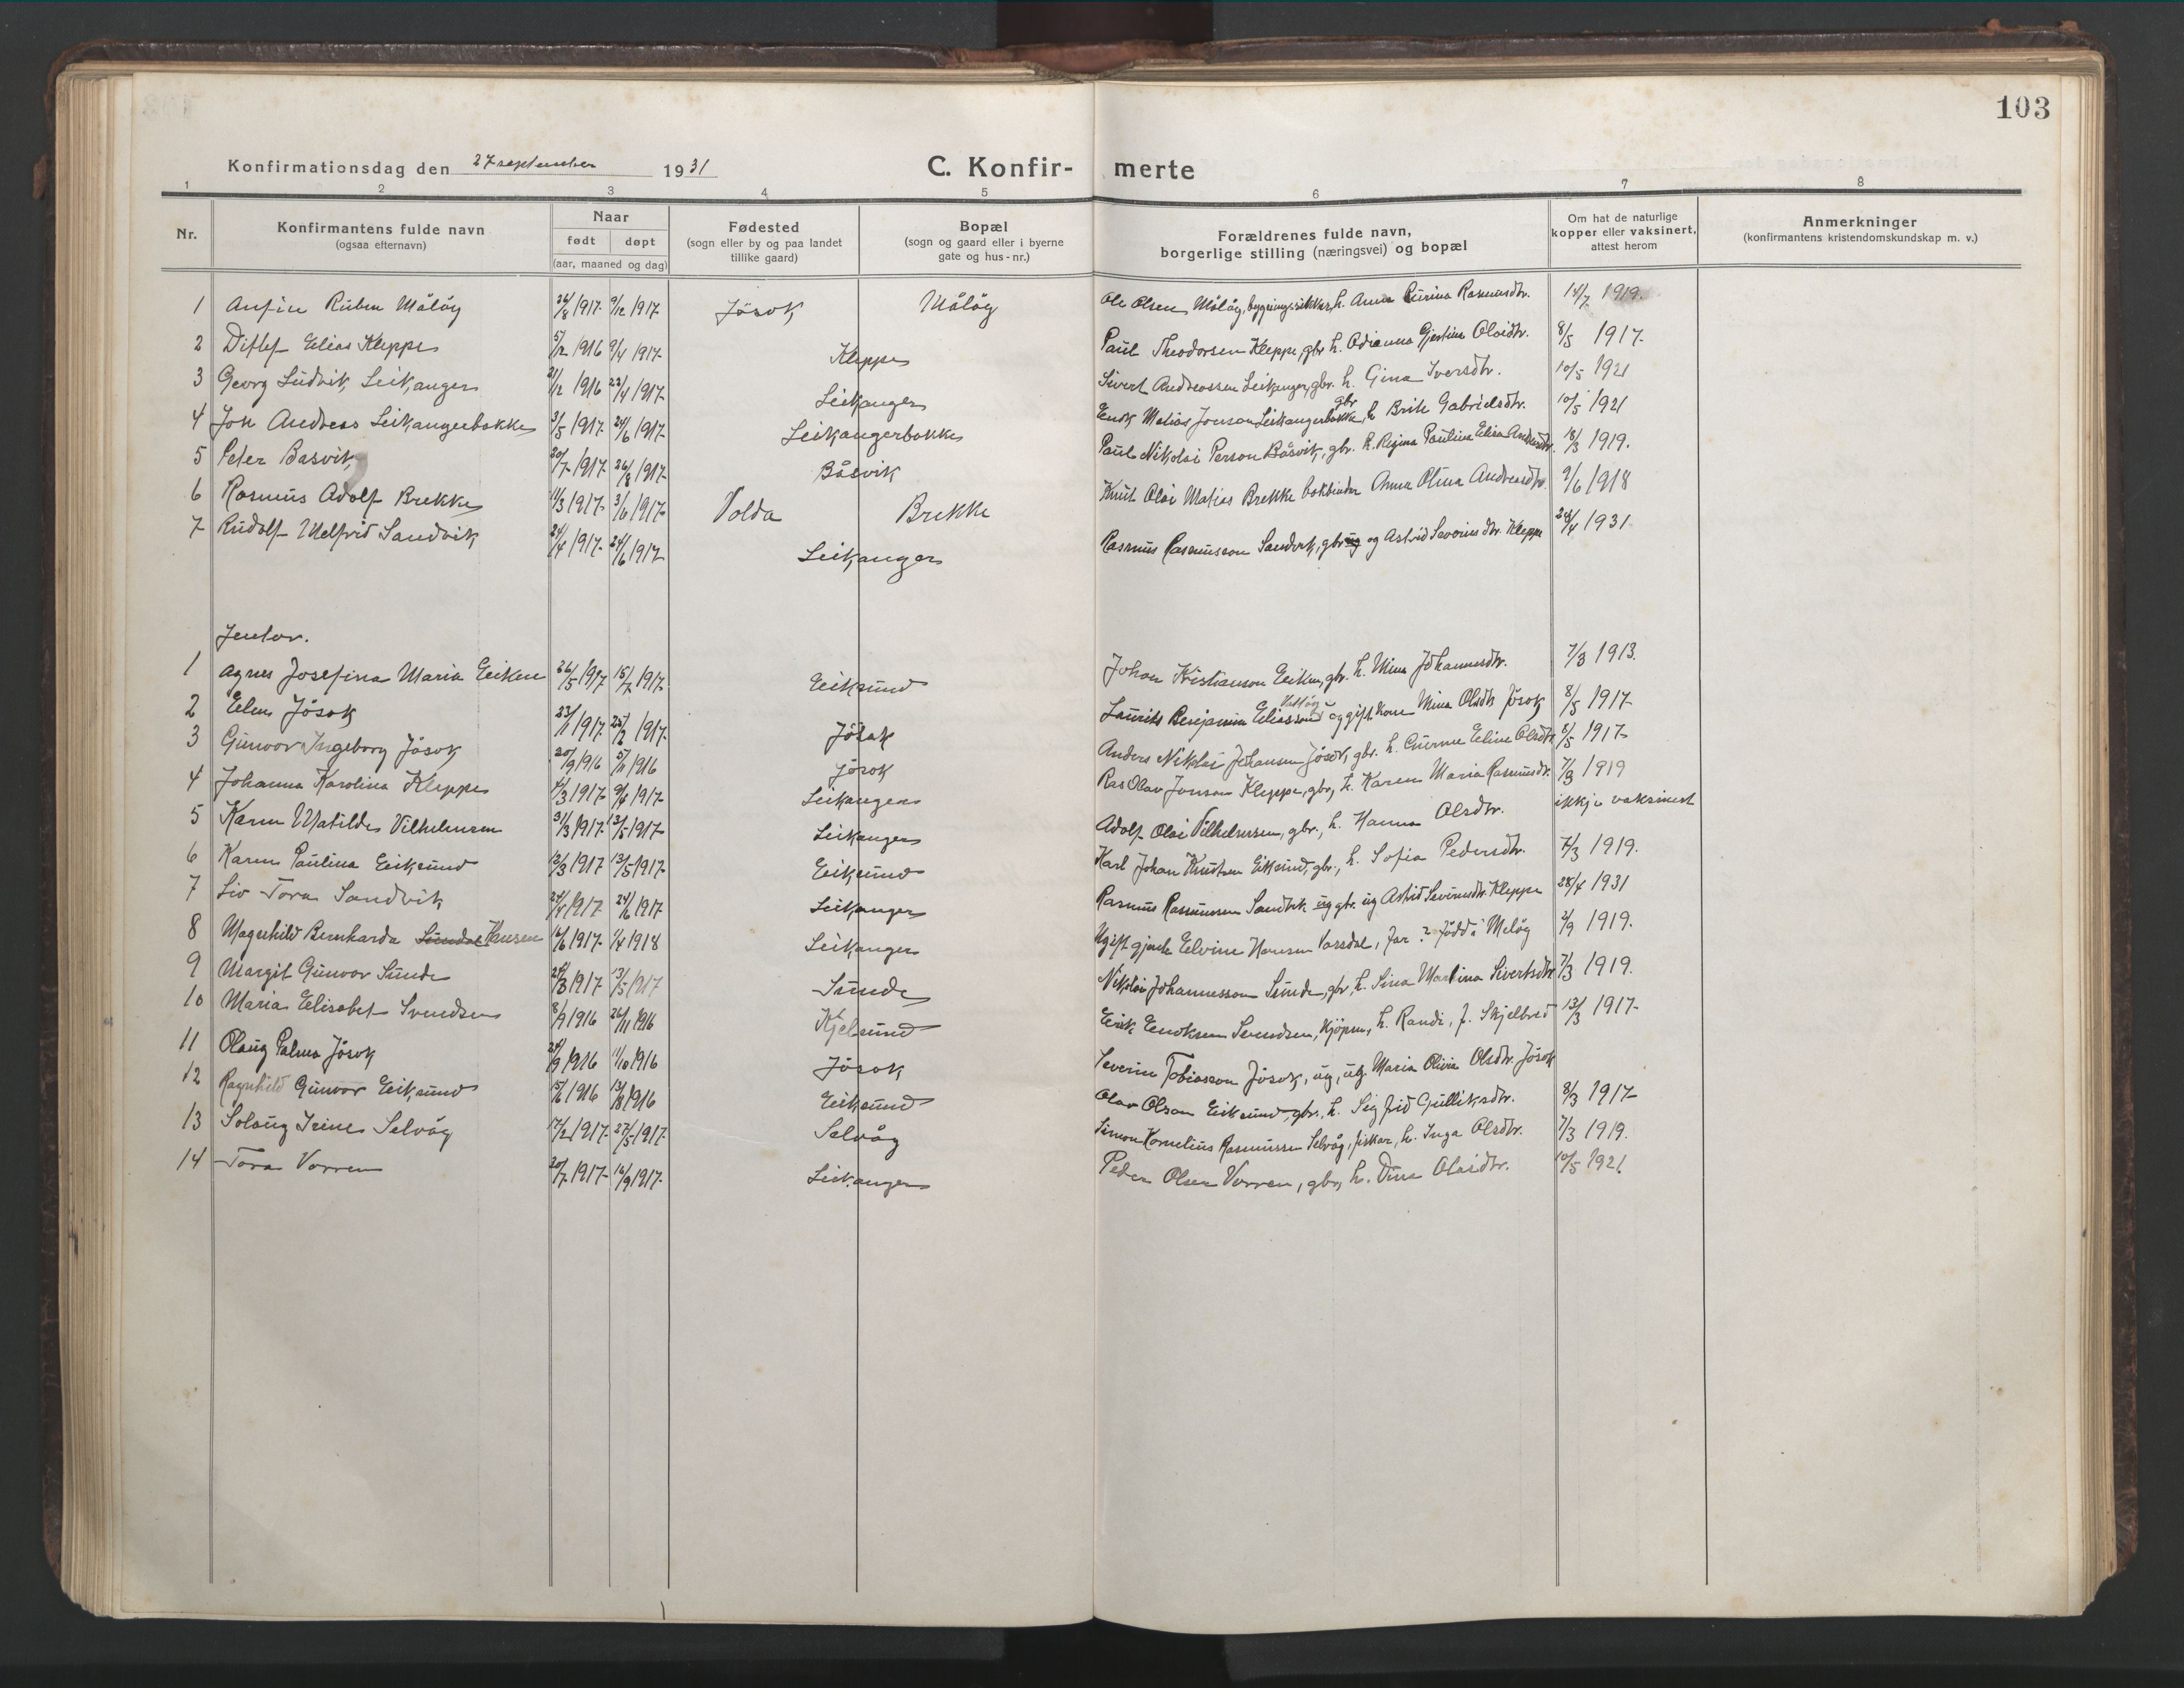 103
Konfirmationsdag den 27 september 1931 C. Konfir- merte
1 2 3 4 5 6 7 8
Nr. Konfirmantens fulde navn (ogsaa efternavn) Naar født døpt (aar, maaned og dag) Fødested (sogn eller by og paa landet tillike gaard) Bopæl (sogn og gaard eller i byerne gate og hus-nr.) Forældrenes fulde navn, borgerlige stilling (næringsvei) og bopæl Om hat de naturlige kopper eller vaksinert, attest herom Anmerkninger (konfirmantens kristendomskundskap m. v.)
1 Anfin Ruben Måløg 26/8 1917 9/12 1917 Jøsok Måløg Ole Olsen Måløg, h. Anna Rasmusdtr. 14/7 1919.
2 Ditlef Elias Kleppe 5/12 1916 9/4 1917 Kleppe Paul Theodorsen Kleppe, gbr. h. Gjertine Olaidtr. 8/5 1917
3 Georg Ludvik Leikanger 21/12 1916 22/4 1917 Leikanger Sivert Andreassen Leikanger, gbr. h. Gina Iversdtr. 10/5 1921
4 Jon Andreas Leikangerbakke 31/5 1917 24/6 1917 Leikangerbakke Enok Matias Jonson Leikangerbakke, gbr h. Brite Gabrielsdtr. 10/5 1921
5 Peter Båsvik 20/7 1917 26/8 1917 Båsvik Paul Nikolai Person Båsvik, gbr. h. Regina Paulina Elisa 18/3 1919.
6 Rasmus Adolf Brekke 11/3 1917 3/6 1917 Volda Brekke Knut Olai Matias Brekke bokbinder Anna Olina Andreasdtr. 9/6 1918
7 Rudolf Melfrid Sandvik 24/4 1917 24/6 1917 Leikanger Rasmus Rasmusson Sandvik, gbr og Astrid Severinsdtr. Kleppe 28/4 1931
Jentor.
1 Agnes Josefina Maria Eiken 26/5 1917 15/7 1917 Eiksund Johan Kristianson Eiken, gbr. h. Mina Johannesdtr. 7/3 1913.
2 Elen Jøsok 23/1 1917 25/2 1917 Jøsok Laurits Benjamin Eliasson og gift kone Mina Olsdtr Jøsok 8/5 1917
3 Gunvor Ingeborg Jøsok 20/9 1916 5/11 1916 Jøsok Anders Nikolai Johansen Jøsok, gbr. h. Eline Olsdtr 8/5 1917
4 Johanna Karolina Kleppe 4/3 1917 9/4 1917 Leikanger Ras Olav Jonson Kleppe, gbr, h. Karen Maria Rasmusdtr. 7/3 1919
5 Karen Matilde Vilhelmsen 31/3 1917 13/5 1917 Leikanger Adolf Olai Vilhelmsen, gbr., h. Hanna Olsdtr. ikkje vaksinert
6 Karen Paulina Eiksund 12/3 1917 13/5 1917 Eiksund Karl Johan Knutsen Eiksund, gbr., h. Sofia Pedersdtr. 7/3 1919.
7 Liv Tora Sandvik 24/4 1917 24/6 1917 Leikanger Rasmus Rasmusson Sandvik ug gbr. ug Astrid Severinsdtr. Kleppe 28/4 1931
8 Magnhild Bernharda Sundal Hansen 16/6 1917 1/4 1918 Leikanger Ugift gjente Elvine Hansen Vassdal, far? Fødd i Meløy 2/9 1919.
9 Margit Gunvor Sunde 28/3 1917 13/5 1917 Sunde Nikolai Johannesson Sunde, gbr, h. Sina Martina Sivertsdtr 7/3 1919.
10 Maria Elisabet Svendsen 8/9 1916 26/11 1916 Kjelsund Eirik Enoksen Svendsen, kjøpm, h. Randi, f. Skjelbred 13/3 1917
11 Olaug Palma Jøsok 24/9 1916 11/10 1916 Jøsok Severin Tobiasson Jøsok, ug, ug. Maria Olivia Olsdtr. Jøsok
12 Ragnhild Gunvor Eiksund 15/6 1916 13/8 1916 Eiksund Olav Olson Eiksund, gbr., h. Sigfrid Gulliksdtr. 8/3 1917
13 Solaug Irene Selvåg 17/2 1917 27/5 1917 Selvåg Simon Kornelius Rasmussen Selvåg, fiskar, h. Inga Olsdtr. 7/3 1919.
14 Tora Vorren 20/7 1917 16/9 1917 Leikanger Peder Olsen Vorren, gbr, h. Dina Olaidtr. 10/5 1921